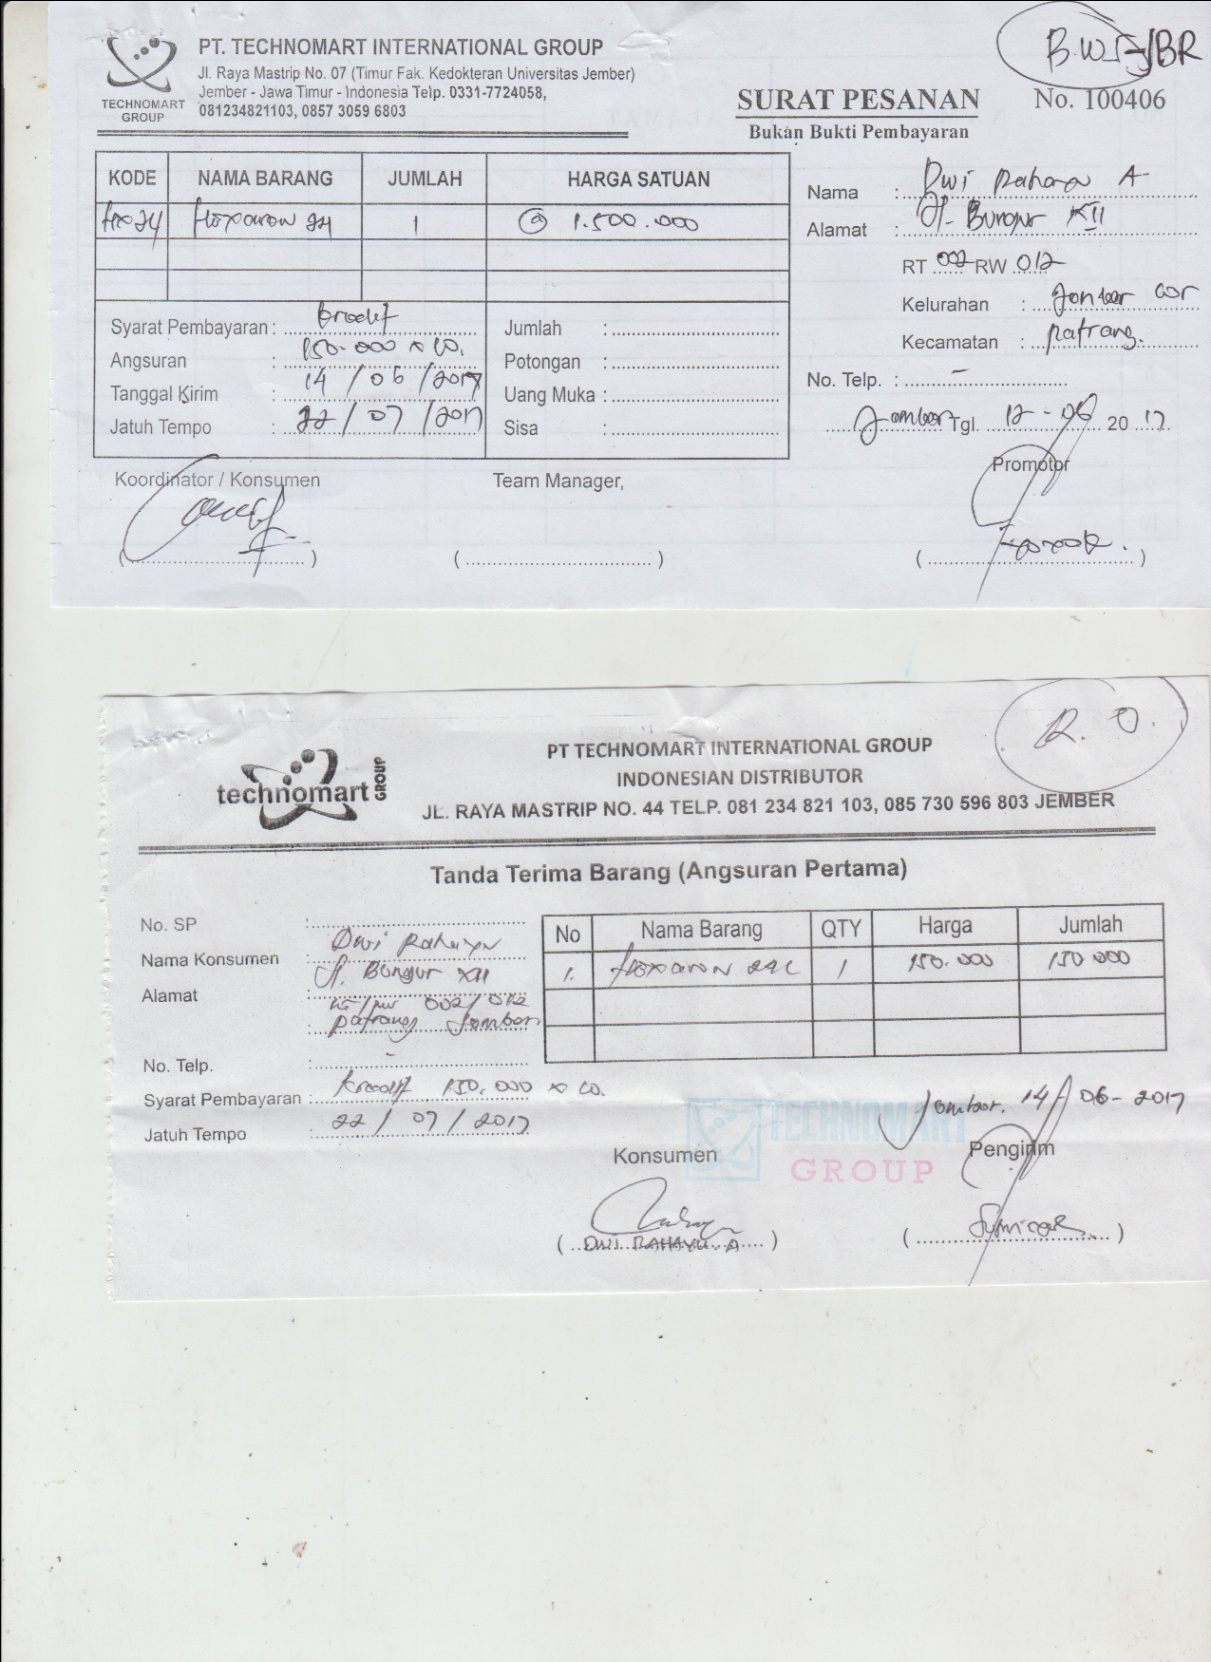 TECHNOMART
GROUP
PT. TECHNOMART INTERNATIONAL GROUP
Jl. Raya Mastrip No. 07 (Timur Fak. Kedokteran Universitas Jember)
Jember - Jawa Timur - Indonesia Telp. 0331-7724058,
081234821103, 0857 3059 6803
SURAT PESANAN
Bukan Bukti Pembayaran
No. 100406
KODE NAMA BARANG JUMLAH HARGA SATUAN
1 @ 1.500.000
Syarat Pembayaran : kredit
Angsuran : 150.000 x 10.
Tanggal Kirim : 14 / 06 / 2017
Jatuh Tempo : 22 / 07 / 2017
Jumlah :
Potongan :
Uang Muka :
Sisa :
Nama : Dwi Rahayu A
Alamat : Jl. Bungur XII
RT 002 RW 012
Kelurahan : Jember
Kecamatan : Patrang.
No. Telp. : -
Jember Tgl. 12 - 06 2017
Koordinator / Konsumen
Team Manager,
Promotor
technomart GROUP
R. O.
PT TECHNOMART INTERNATIONAL GROUP
INDONESIAN DISTRIBUTOR
JL. RAYA MASTRIP NO. 44 TELP. 081 234 821 103, 085 730 596 803 JEMBER
Tanda Terima Barang (Angsuran Pertama)
No. SP :
Nama Konsumen : Dwi Rahayu
Alamat : Jl. Bungur XII
RT/RW 002/012
: Patrang Jember
No. Telp. : -
Syarat Pembayaran : kredit 150.000 x 10.
Jatuh Tempo : 22 / 07 / 2017
No Nama Barang QTY Harga Jumlah
1. 1 150.000 150.000
Jember. 14 - 06 - 2017
TECHNOMART
GROUP
Konsumen
Pengirim
( DWI RAHAYU A )